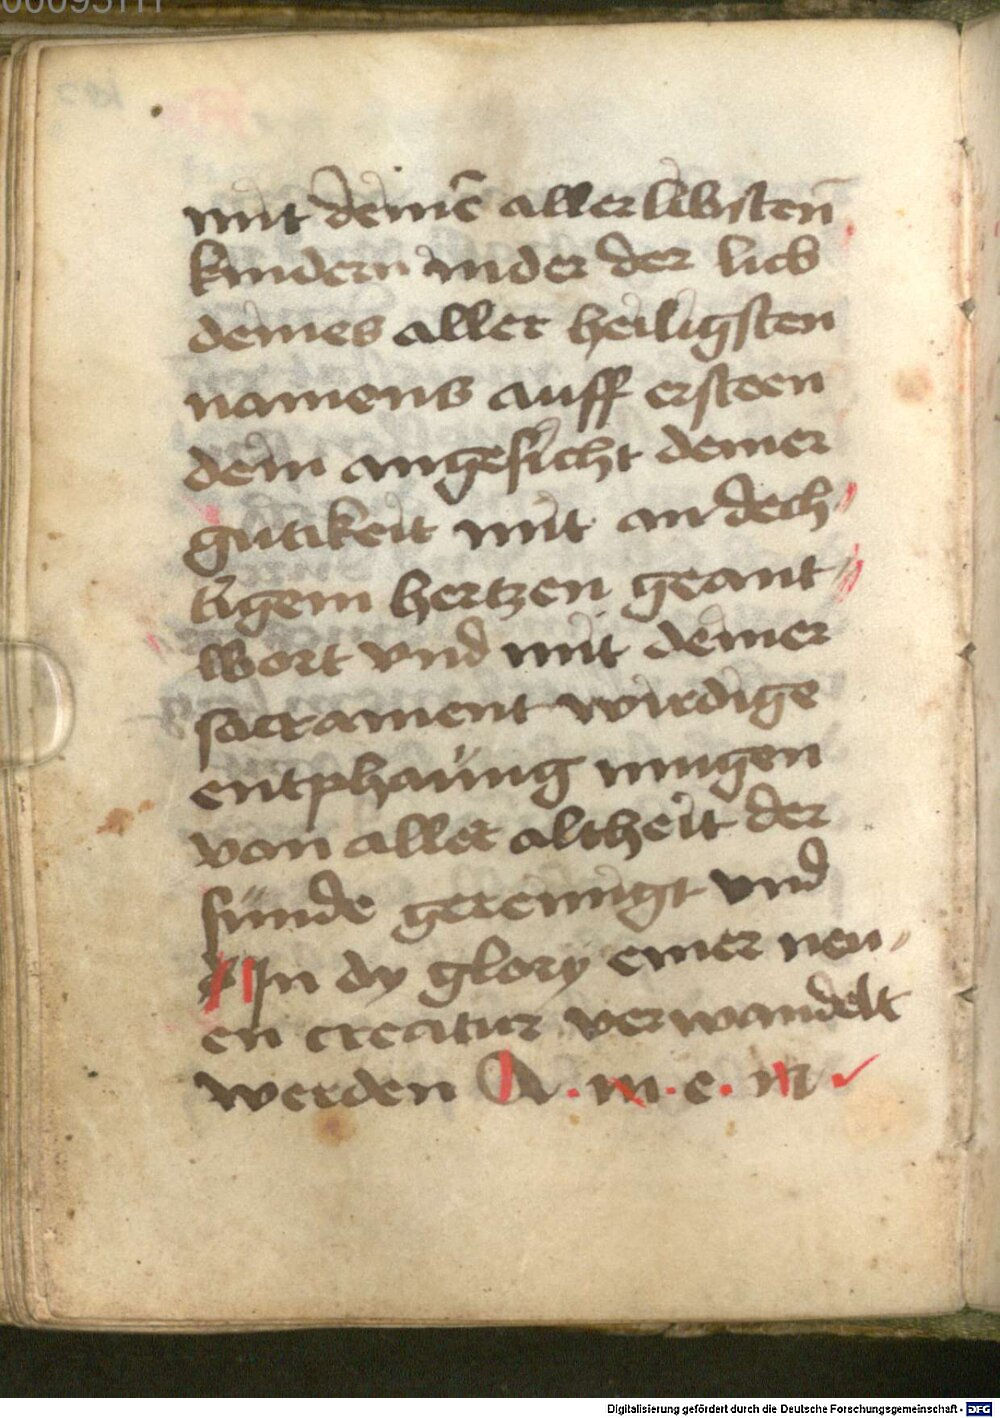 mit deinē aller libsten
kindern in der der lieb
deines aller heiligsten
namens auff ersteen
dem angesicht deiner
gutikeit mit an dech
tigem hertzen geant
wort vnd mit deiner
sacrament wirdige
entphaüng mugen
von aller altheit der
sünde gereinigt vnd
In dy glory einer neu
en creatur verwandelt
werden A · m · e · n
Digitalisierung gefördert durch die Deutsche Forschungsgemeinschaft - DFG